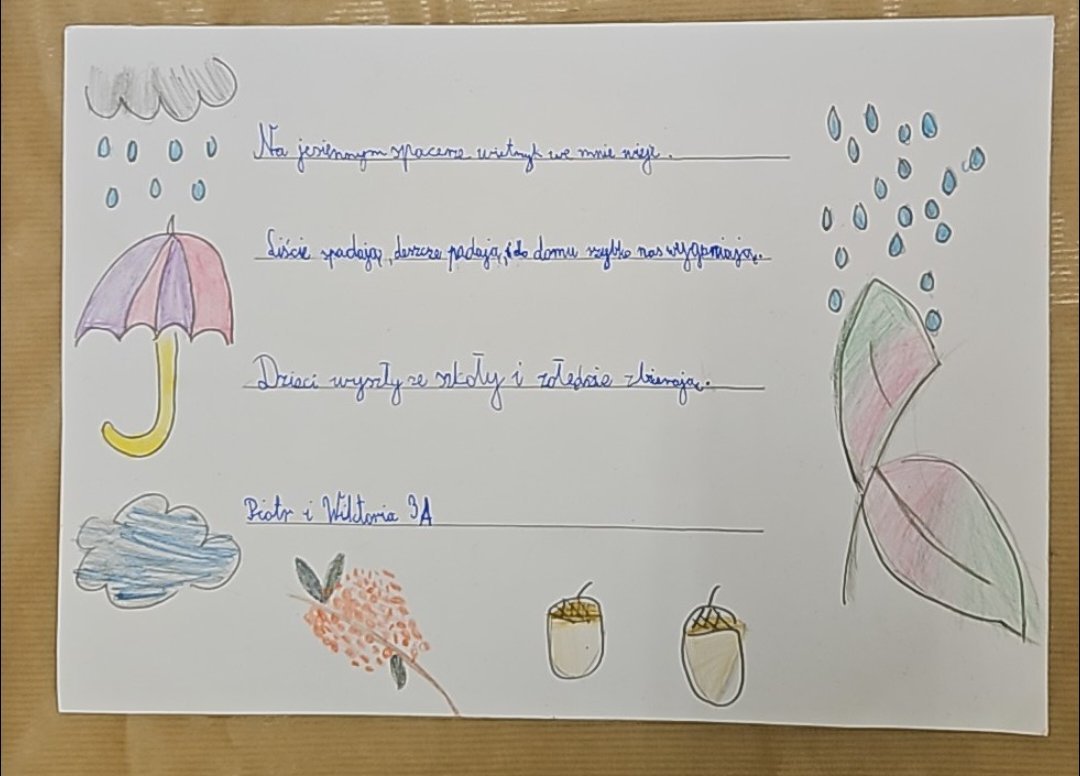 Na jesiennym spacerze wietrzyk we mnie wieje.
Liście spadają, deszcze padają, i do domu szybko nas wyganiają.
Dzieci wyszły ze szkoły i żołędzie zbierają.
Piotr i Wiktoria 3A